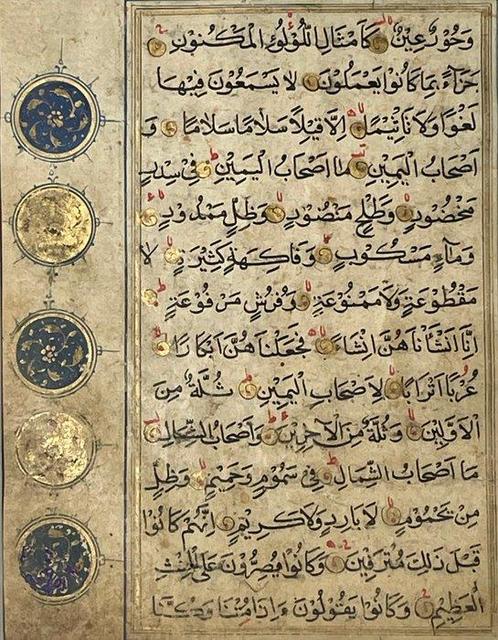 وَحُورٌ عِينٌ كَأَمْثَالِ اللُّؤْلُؤِ الْمَكْنُونِ
جَزَاءً بِمَا كَانُوا يَعْمَلُونَ لَا يَسْمَعُونَ فِيهَا
لَغْوًا وَلَا تَأْثِيمًا إِلَّا قِيلًا سَلَامًا سَلَامًا وَ
أَصْحَابُ الْيَمِينِ مَا أَصْحَابُ الْيَمِينِ فِي سِدْرٍ
مَخْضُودٍ وَطَلْحٍ مَنْضُودٍ وَظِلٍّ مَمْدُودٍ
وَمَاءٍ مَسْكُوبٍ وَفَاكِهَةٍ كَثِيرَةٍ لَا
مَقْطُوعَةٍ وَلَا مَمْنُوعَةٍ وَفُرُشٍ مَرْفُوعَةٍ
إِنَّا أَنْشَأْنَاهُنَّ إِنْشَاءً فَجَعَلْنَاهُنَّ أَبْكَارًا
عُرُبًا أَتْرَابًا لِأَصْحَابِ الْيَمِينِ ثُلَّةٌ مِنَ
الْأَوَّلِينَ وَثُلَّةٌ مِنَ الْآخِرِينَ وَأَصْحَابُ الشِّمَالِ
مَا أَصْحَابُ الشِّمَالِ فِي سَمُومٍ وَحَمِيمٍ وَظِلٍّ
مِنْ يَحْمُومٍ لَا بَارِدٍ وَلَا كَرِيمٍ إِنَّهُمْ كَانُوا
قَبْلَ ذَلِكَ مُتْرَفِينَ وَكَانُوا يُصِرُّونَ عَلَى الْحِنْثِ
الْعَظِيمِ وَكَانُوا يَقُولُونَ أَئِذَا مِتْنَا وَكُنَّا